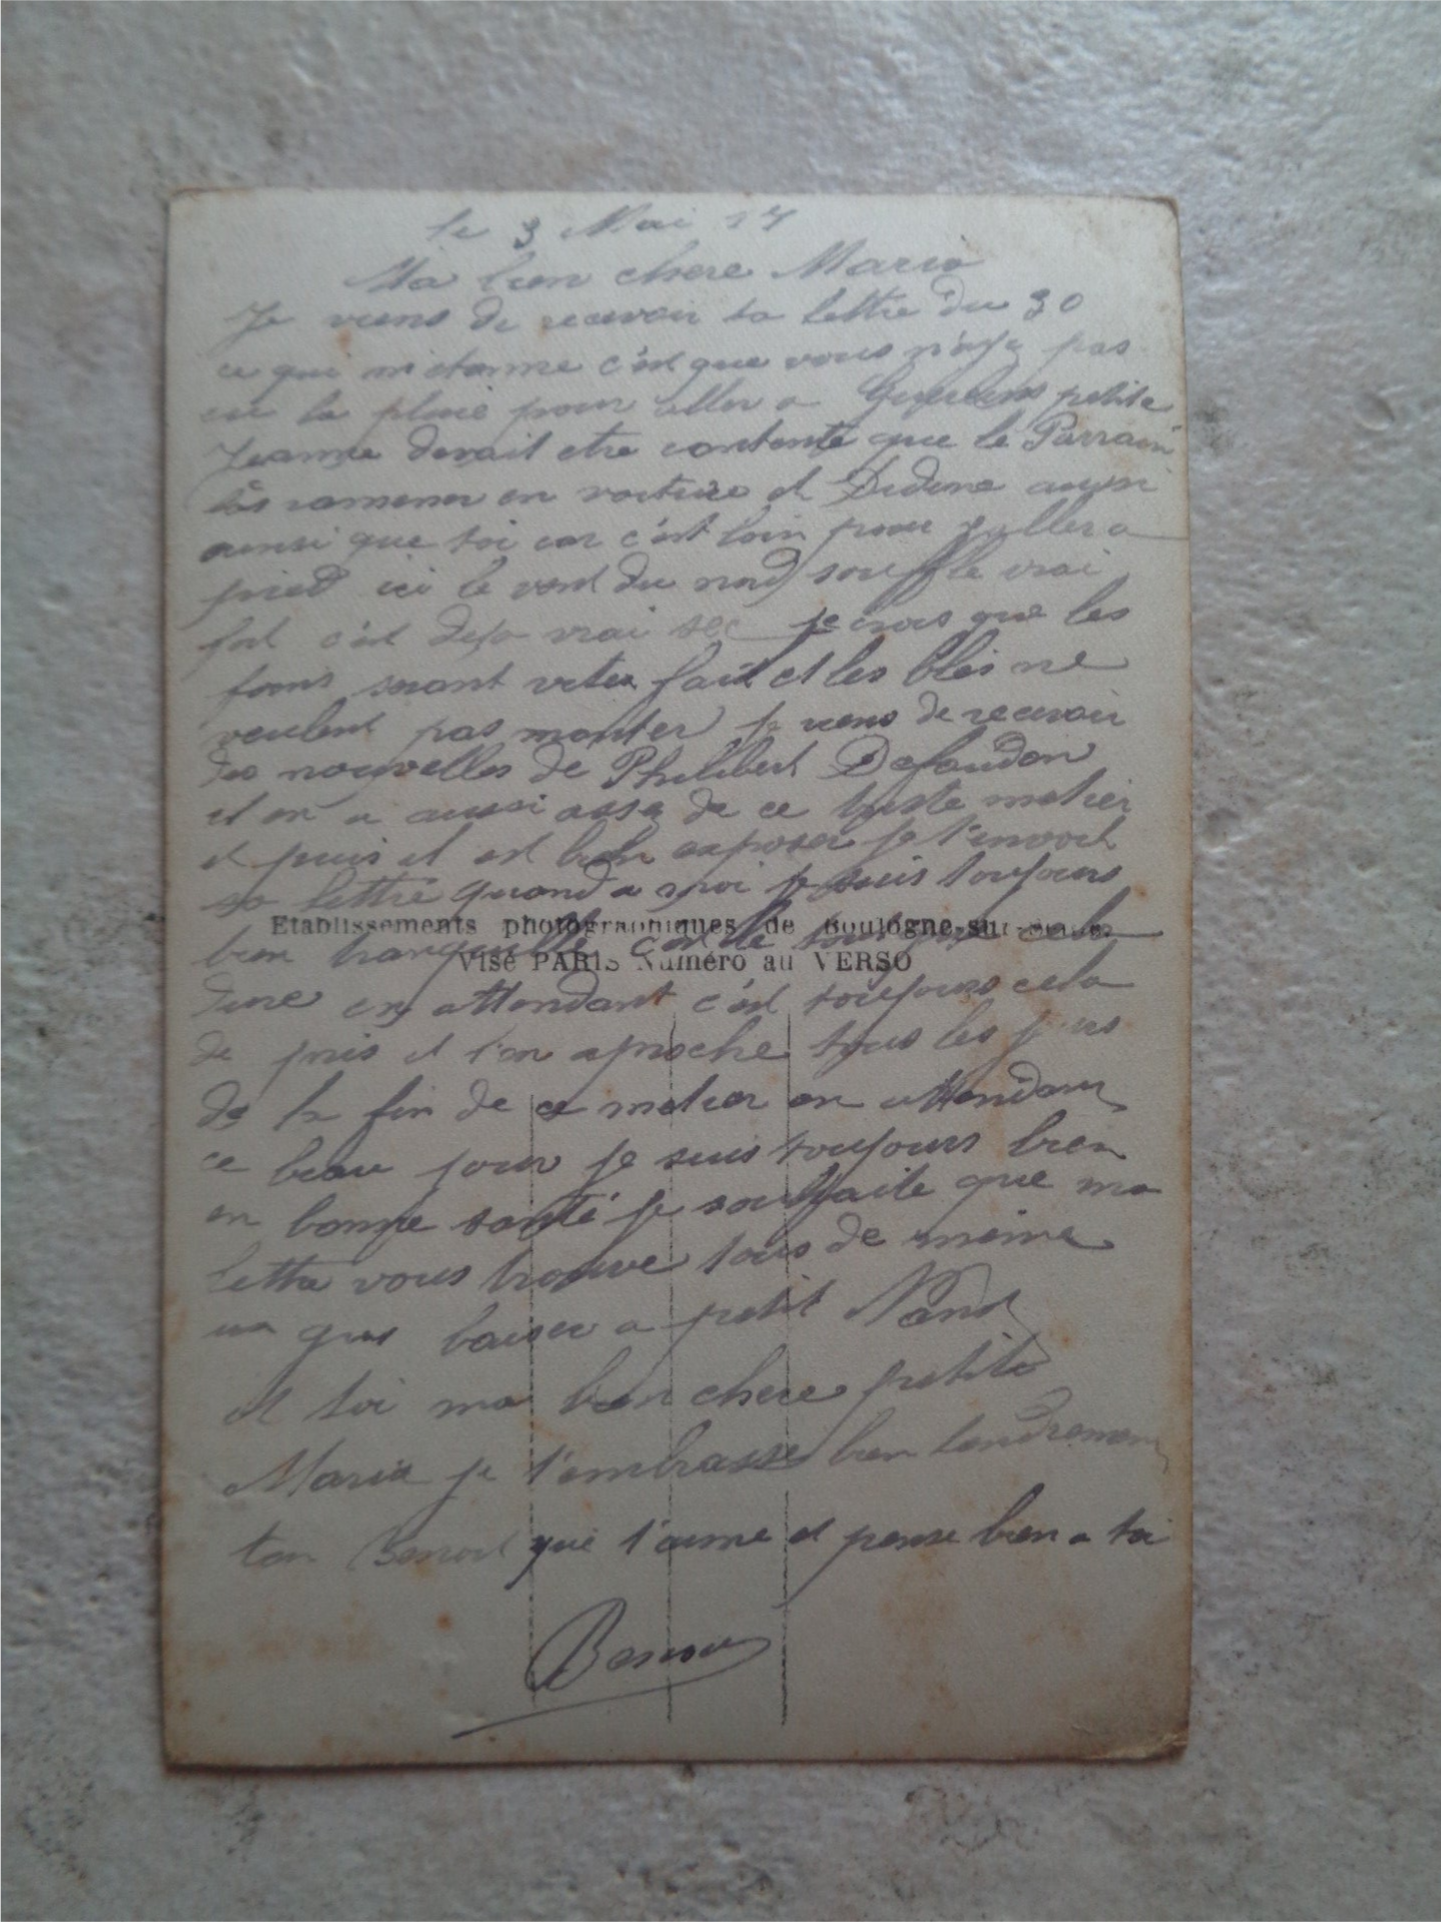 le 3 Mai 17
Ma bien chere Maria
Je viens de recevoir ta lettre du 30
ce qui m'etonne c'est que vous n'aye pas
eu la pluie pour aller a petite
Jeanne devait etre contente que le Parrain
les ramener en voiture et Didine aussi
ainsi que toi car c'est loin pour y aller a
pied ici le vent du nord souffle vrai
fort c'est deja vrai sec je crois que les
foins seront vites fait et les blés ne
veulent pas monter je viens de recevoir
des nouvelles de Philibert Defaudon
il en a aussi asse de ce triste metier
et puis il est bien exposer je t'envoit
sa lettre quand a moi je suis toujours
Etablissements photographiques de Boulogne-sur-Seine
bien tranquille c'est le cela
Visé PARIS Numéro au VERSO
dure en attendant c'est toujours cela
de pris et l'on aproche tous les jours
de la fin de ce metier en attendant
ce beau jour je suis toujours bien
en bonne santé je souhaite que ma
lettre vous trouve tous de même
un gros baiser a petit
et toi ma bien chere petite
Maria je t'embrasse bien tendrement
ton Benoit qui t'aime et pense bien a toi
Benoit